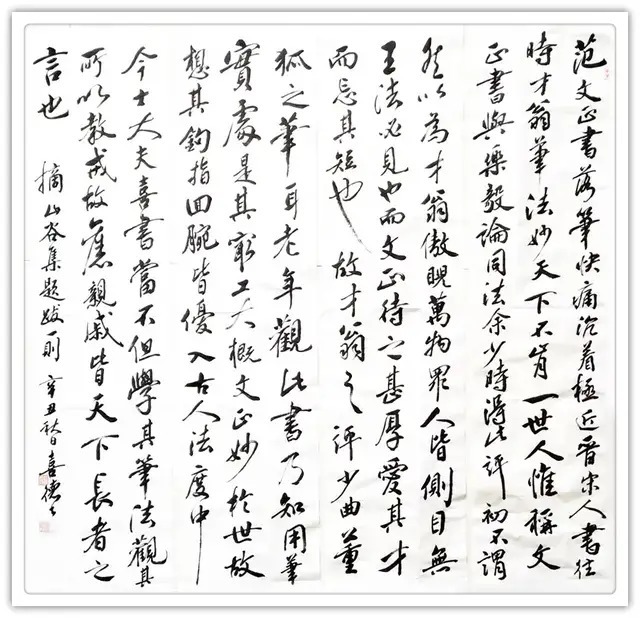 范文正書落筆快痛沈着極近晋宋人書往
時才翁筆法妙天下不肯一世人惟稱文
正書與樂毅論同法余少時得此評初不謂
然以為才翁傲睨萬物眾人皆側目無
王法必見也而文正待之甚厚愛其才
而忘其短也故才翁之評少曲董
狐之筆耳老年觀此書乃知用筆
實處是其最工大概文正妙於世故
想其鈎指回腕皆優入古人法度中
今士大夫喜書當不但學其筆法觀其
所以教戒故舊親戚皆天下長者之
言也 摘山谷集題跋一則 辛丑秋日喜德